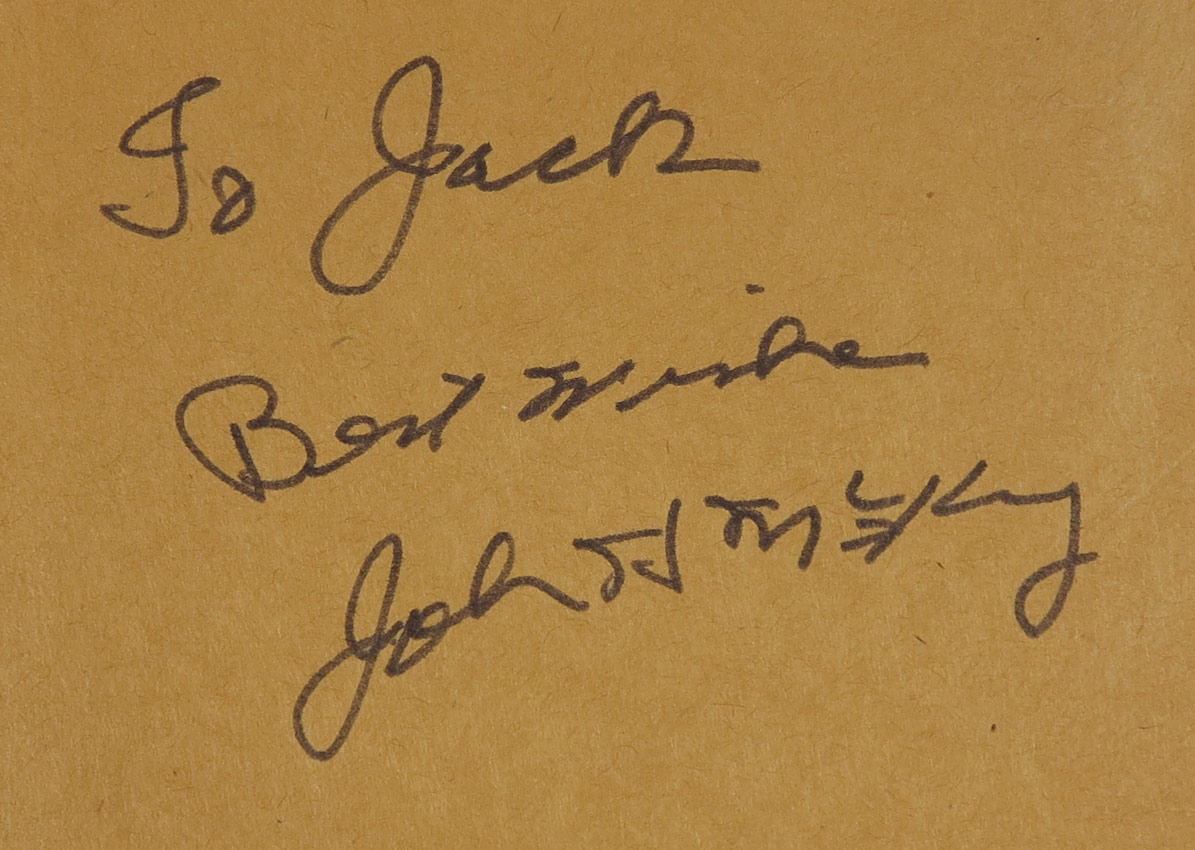 To Jack
Best Wishes
John